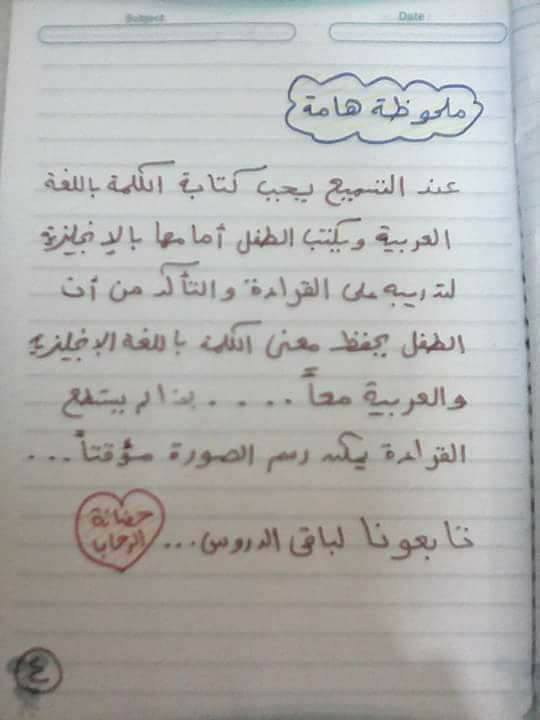 Subject
Date
ملحوظة هامة
عند التسميع يجب كتابة الكلمة باللغة
العربية ويكتب الطفل أمامها بالإنجليزية
لتدريبه على القراءة والتأكد من أن
الطفل يحفظ معنى الكلمة باللغة الإنجليزية
والعربية معاً .... إذا لم يستطع
القراءة يمكن رسم الصورة مؤقتاً ...
تابعونا لباقى الدروس ...
حضانة
الرحاب
٤